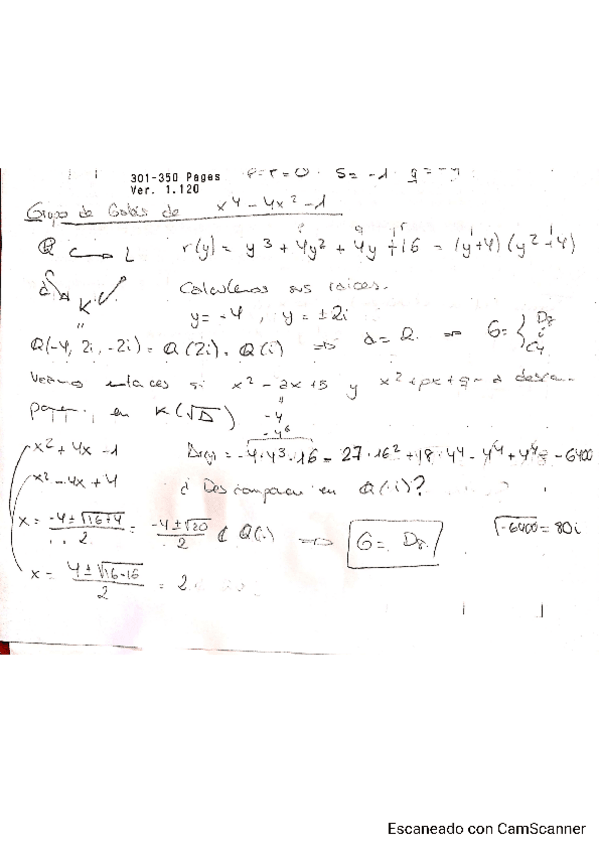 301-350 Pages
Ver. 1.120
p=r=0 . S=-1 q=-4
Grupo de Galois de x⁴-4x²-1
Q ⊂→ L r(y) = y³ + 4y² + 4y + 16 = (y+4)(y²+4)
K Calculemos sus raices.
y=-4, y=±2i
Q(-4, 2i, -2i) = Q(2i) = Q(i) ⇒ d=2. ⇒ G= { D₈ ó C₄
Veamos entonces si x² - ax + s y x² + px + q - a descom-
ponen en K(√D) -4
-4⁶
x² + 4x - 1 Dr(y) = -4·4³·16 - 27·16² + 18·4⁴ - 4⁴ + 4⁴ = -6400
x² - 4x + 4 ¿Descomponen en Q(i)?
x = (-4±√16+4)/2 = (-4±√20)/2 ∉ Q(i) ⇒ G = D₈. √-6400 = 80i
x = (4±√16-16)/2 = 2
Escaneado con CamScanner